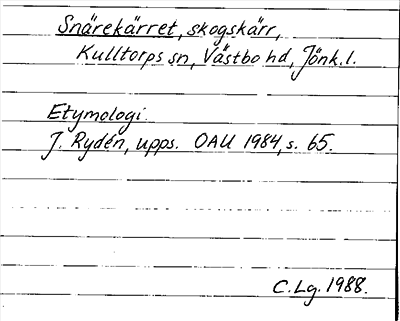 Snärekärret, skogskärr,
Kulltorps sn, Västbo hd, Jönk. l.
Etymologi.
J. Rydén, upps. OAU 1984, s. 65.
C. Lg. 1988.